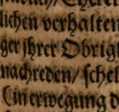 lichen verhalten
ger jhrer Obrig
nachreden/ schel
In erwegung d